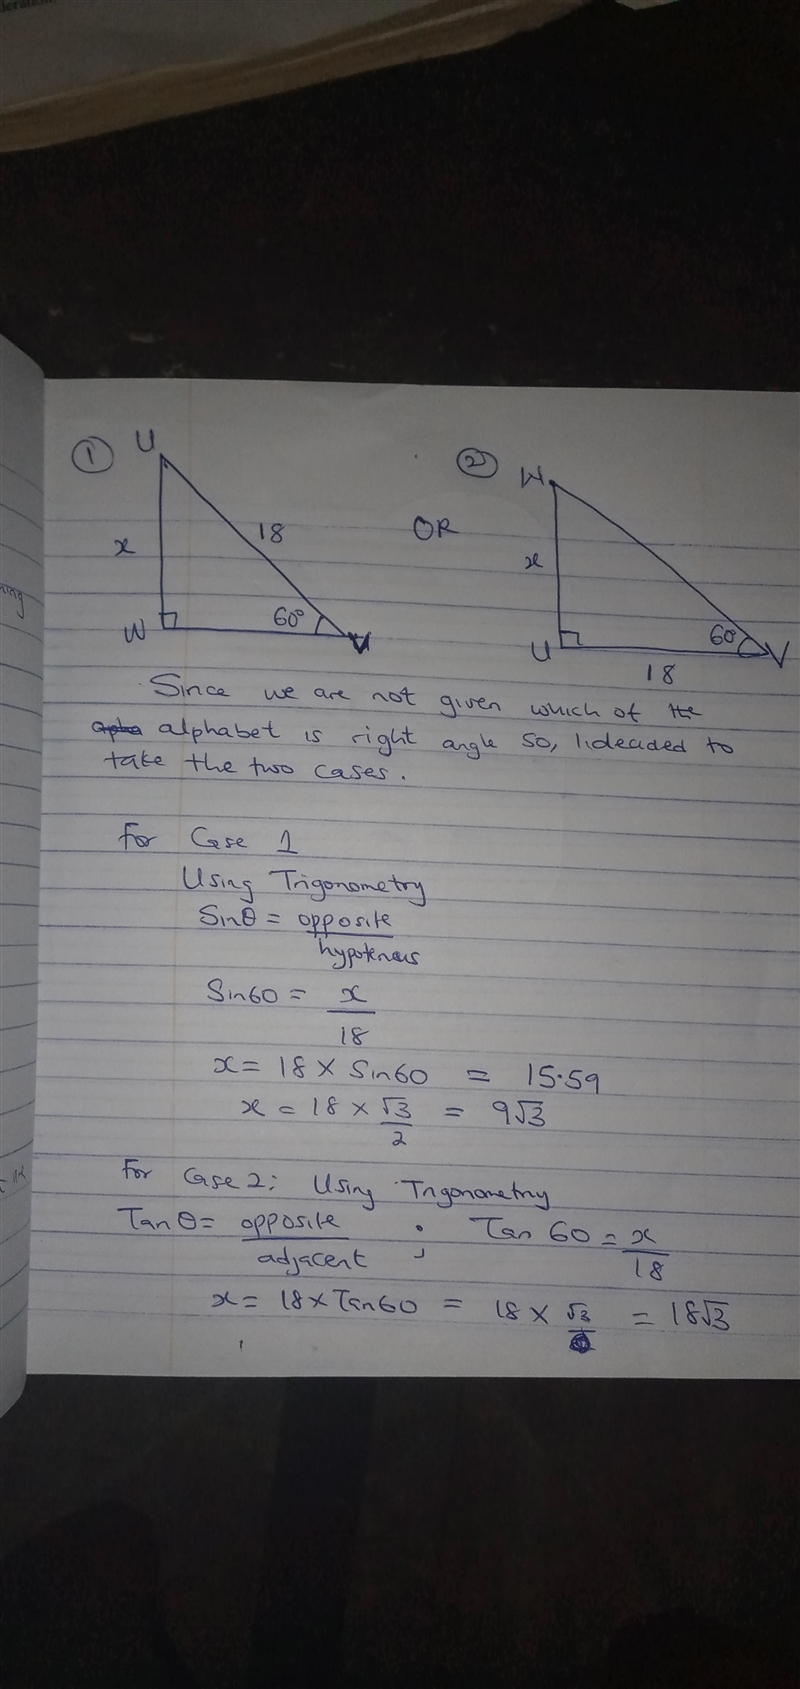 ① U
18
x
W
60°
V
OR
② W
x
U
60°
V
18
Since we are not given which of the
alphabet is right angle so, I decided to
take the two cases.
For Case 1
Using Trigonometry
Sinθ = opposite
hypotenus
Sin60 = x
18
x = 18 × Sin60 = 15.59
x = 18 × √3/2 = 9√3
For Case 2: Using Trigonometry
Tan θ = opposite ; Tan 60 = x
adjacent
18
x = 18 × Tan60 = 18 × √3 = 18√3